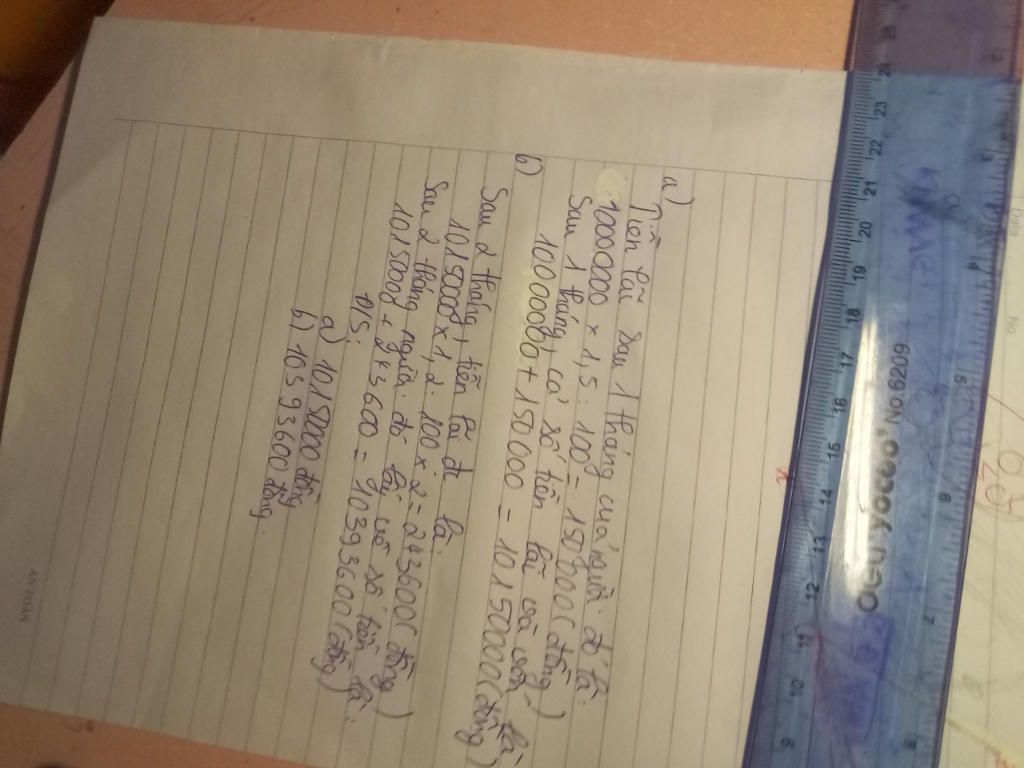 a)
Tiền lãi sau 1 tháng của người đó là:
10000000 x 1,5 : 100 = 150000 (đồng)
Sau 1 tháng, cả số tiền lãi và vốn là
10000000 + 150000 = 10150000 (đồng)
b)
Sau 2 tháng, tiền lãi đ là:
10150000 x 1,2 : 100 x 2 = 243600 (đồng)
Sau 2 tháng người đó lấy số tiền là:
10150000 + 243600 = 10393600 (đồng)
Đ/S:
a) 10150000 đồng
b) 10393600 đồng.
AN TOAN
OGU yoceo No.6209
24
23
22
21
20
19
18
17
16
15
14
13
12
11
10
9
Date
No